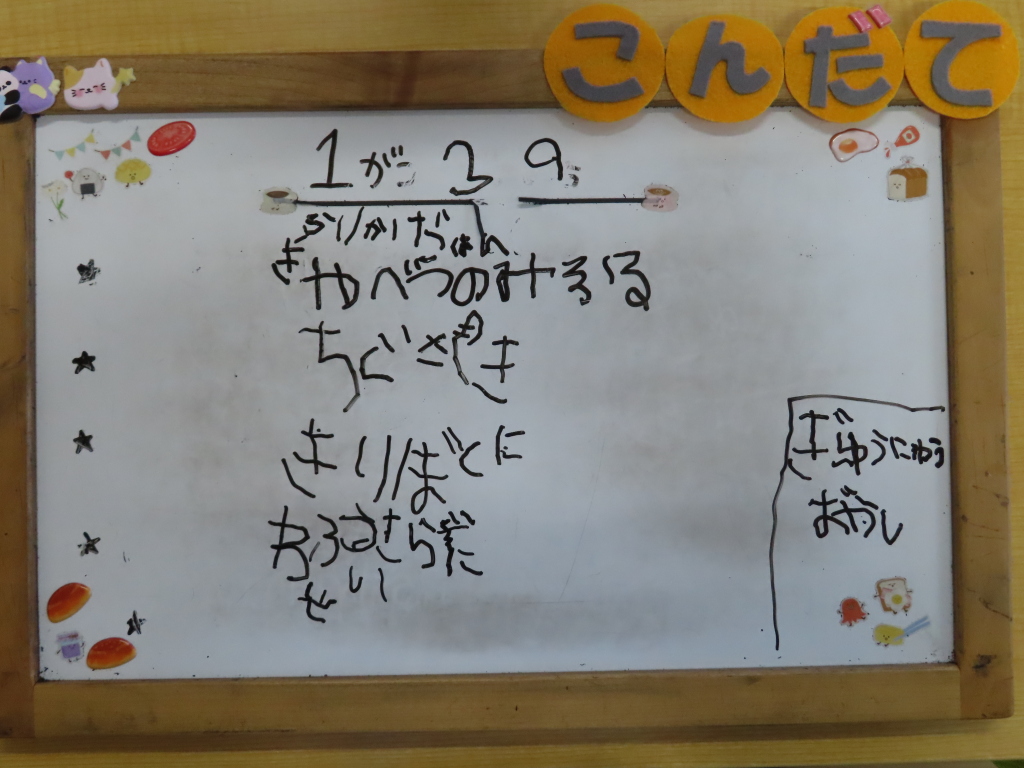 こんだて
1が 3 9
ふりかけごはん
きやべつのみそしる
ちぐさやき
きりぼとに
おふのさらだ
ぜい
ぎゅうにゅう
おやつ